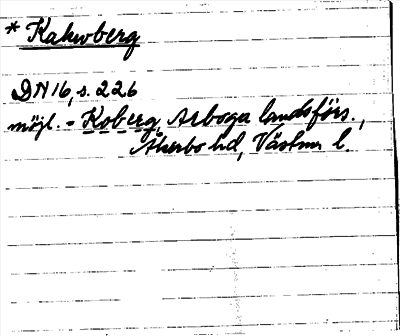 * Kakuoberg
DN 16, s. 226
möjl. = Koberg, Arboga landsförs.,
Åkerbo hd, Västm. l.